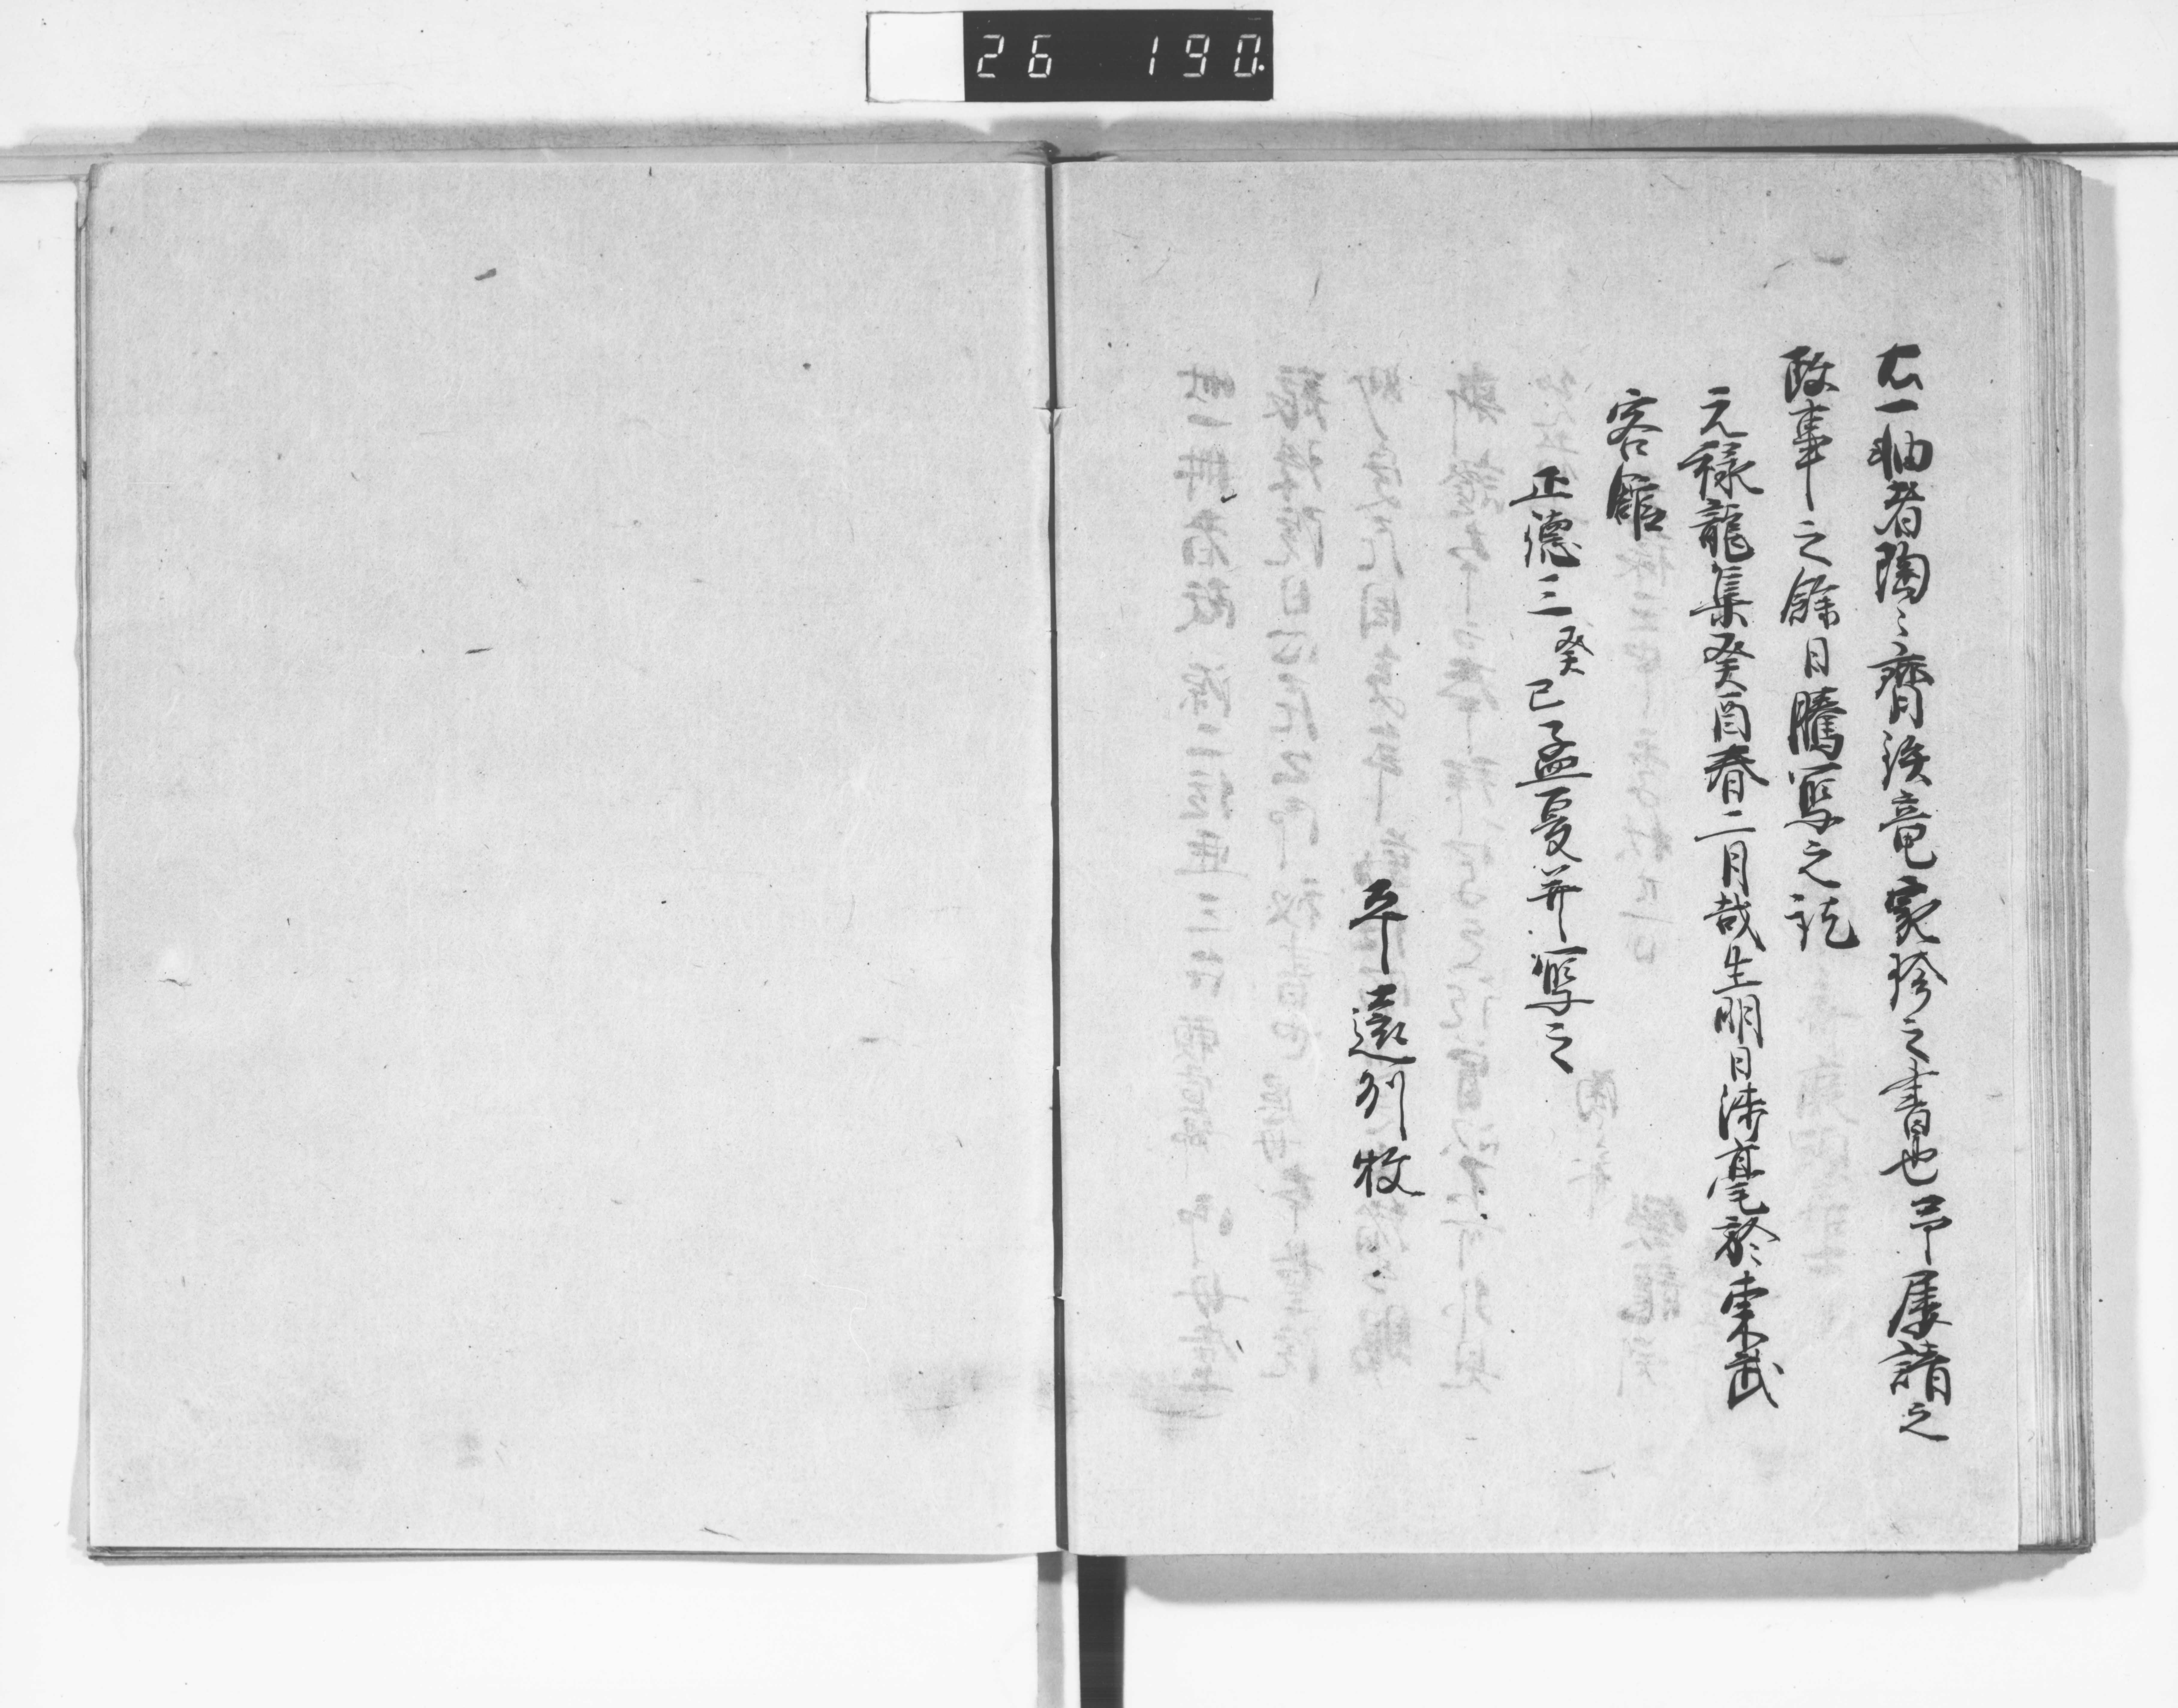 26 190.
右一軸者陶〻齊族竜家珎之書也予屡請之
政事之餘日騰寫之訖
元禄龍集癸酉春二月哉生明日沸毫於東武
客舘
正德三癸巳孟夏并寫之
平遠州牧